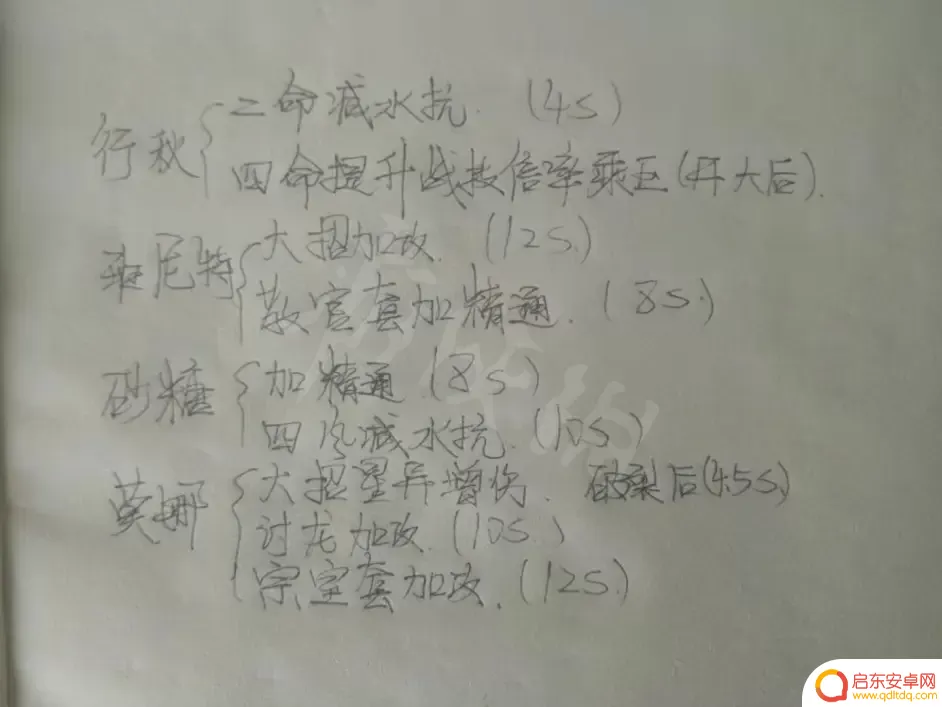 行秋
二命减水抗.(4s)
四命提升战技倍率乘区(开大后).
班尼特
大招加攻.(12s.)
教官套加精通.(8s.)
砂糖
加精通(8s)
四风减水抗.(10s)
莫娜
大招星异增伤. 破裂后(4.5s.)
讨龙加攻.(10s.)
宗室套加攻.(12s.)
启东安卓网
www.qdltdq.com